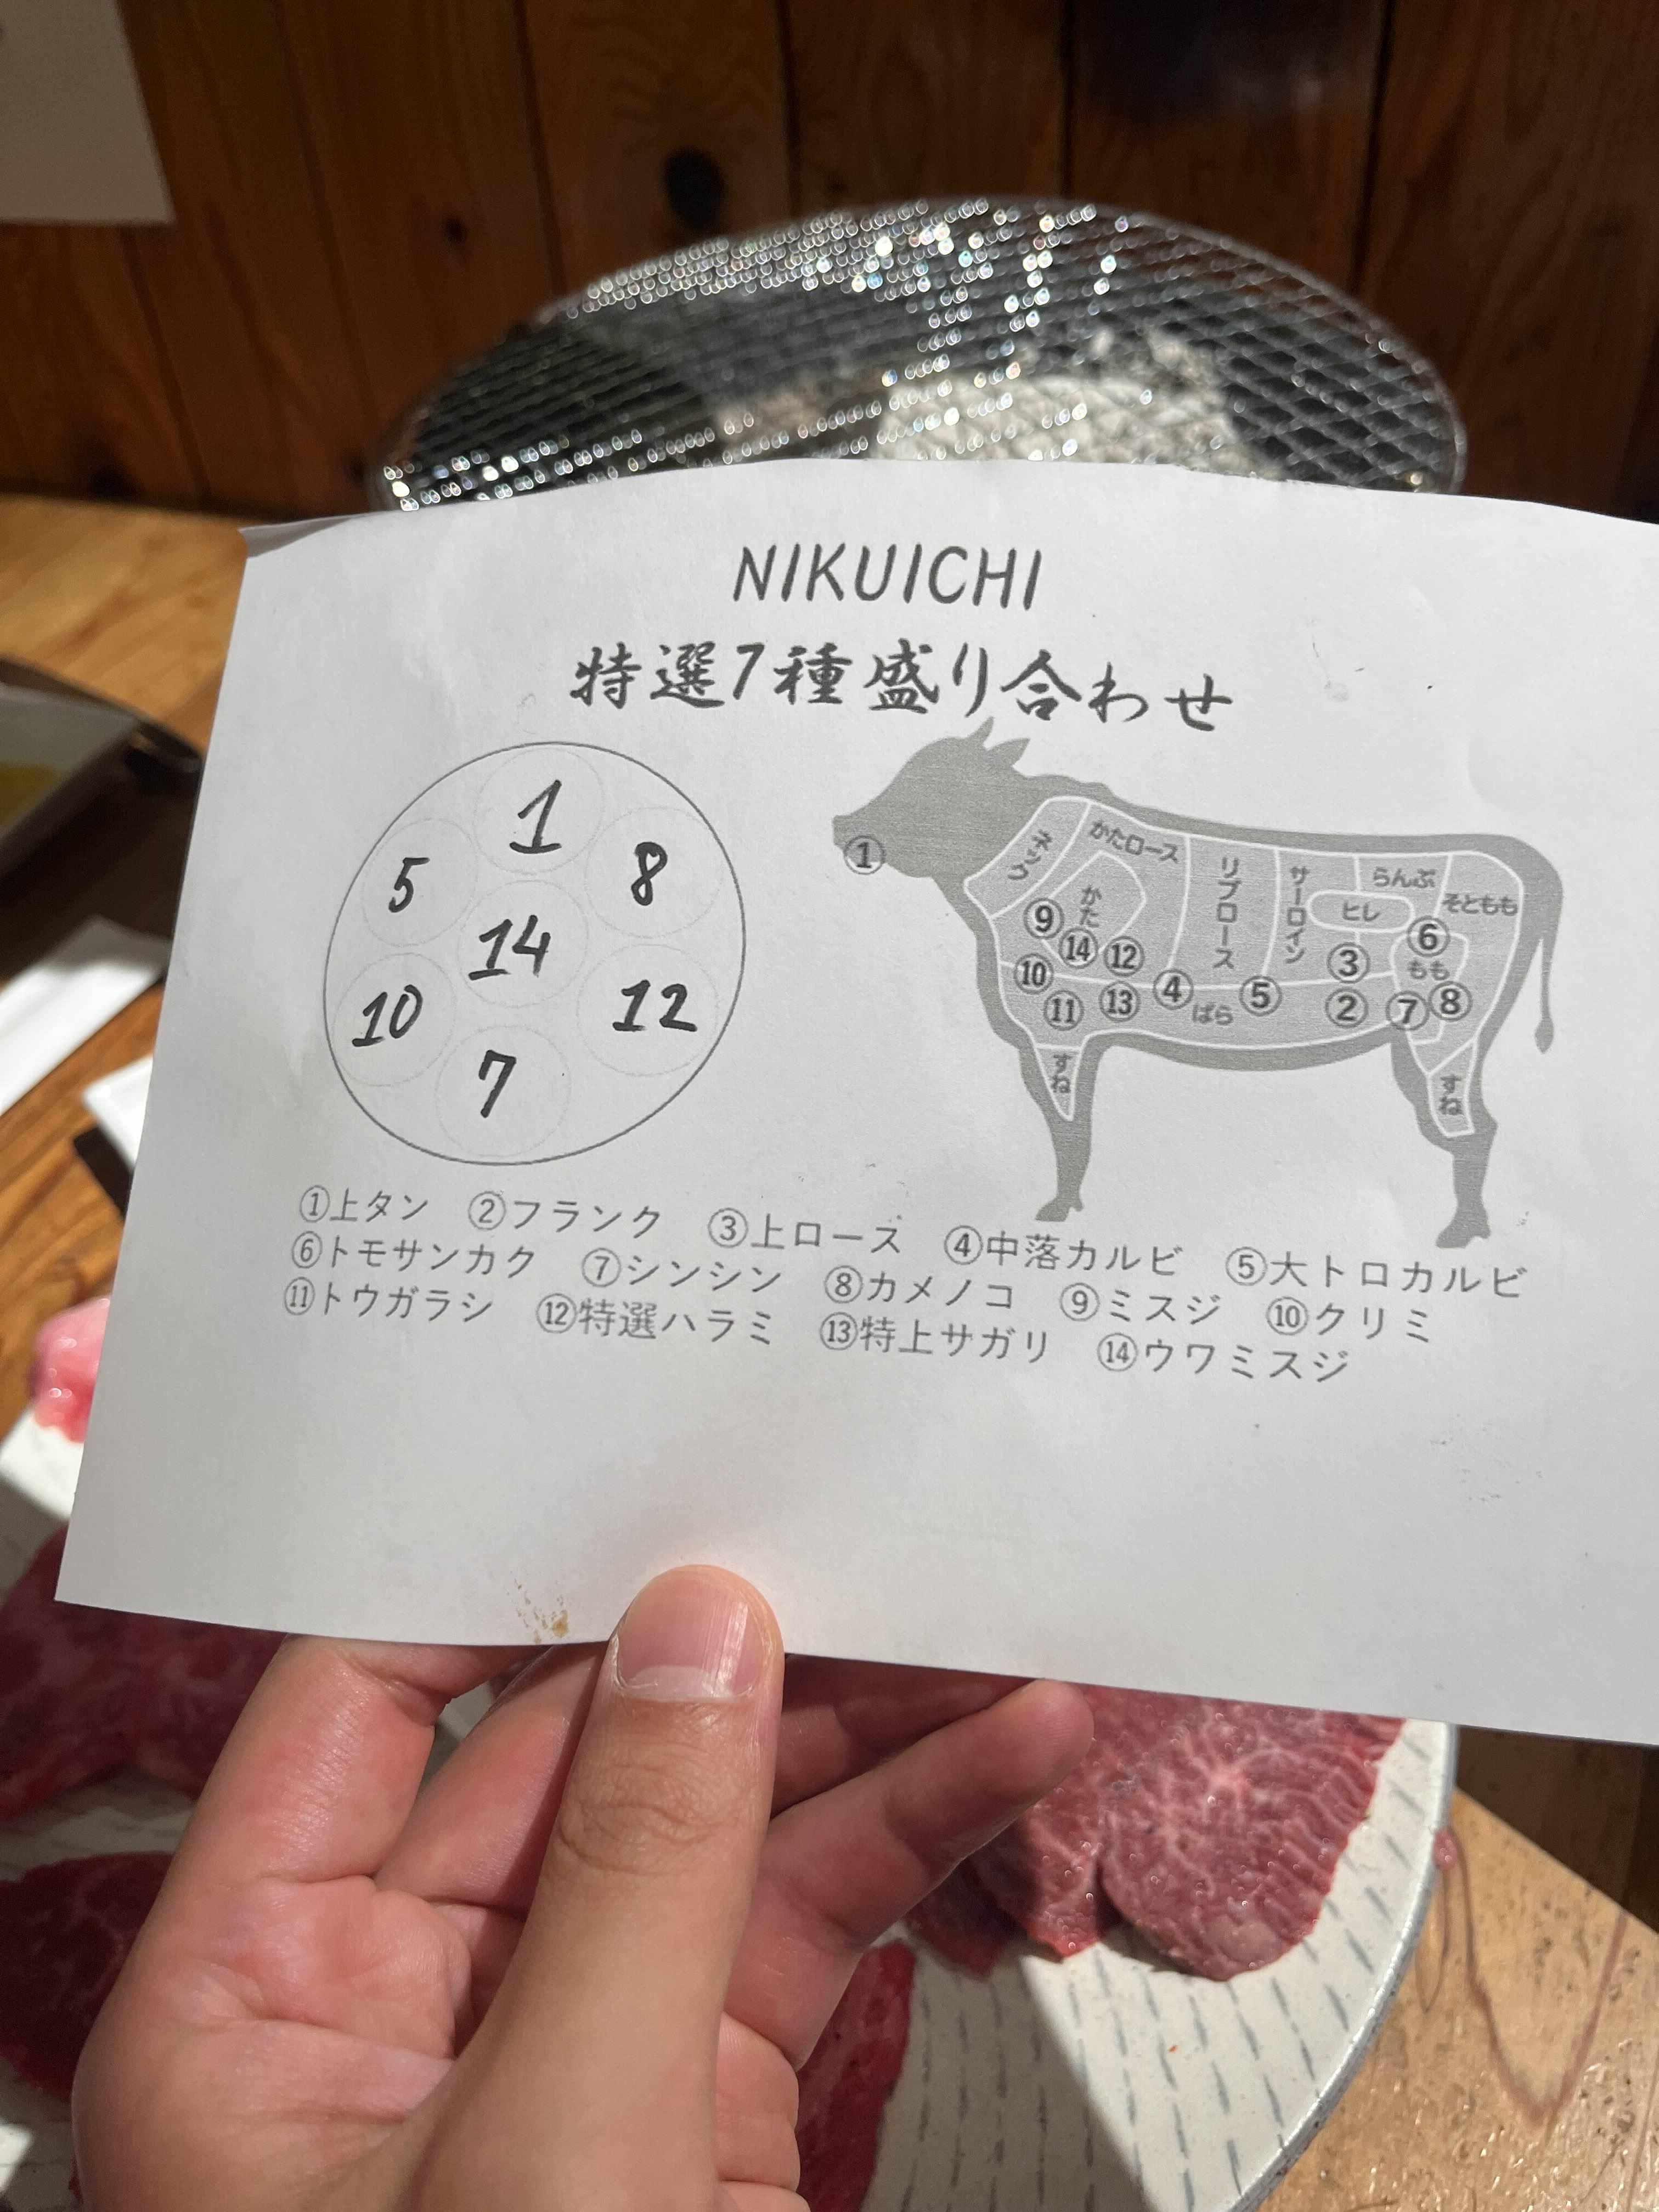 NIKUICHI
特選7種盛り合わせ
1
5
8
14
10
12
7
①
ネック
かたロース
かた
リブロース
サーロイン
らんぷ
ヒレ
そともも
⑨
⑭
⑫
⑥
⑩
⑪
⑬
④
⑤
③
もも
ばら
②
⑦
⑧
すね
すね
①上タン ②フランク ③上ロース ④中落カルビ ⑤大トロカルビ
⑥トモサンカク ⑦シンシン ⑧カメノコ ⑨ミスジ ⑩クリミ
⑪トウガラシ ⑫特選ハラミ ⑬特上サガリ ⑭ウワミスジ